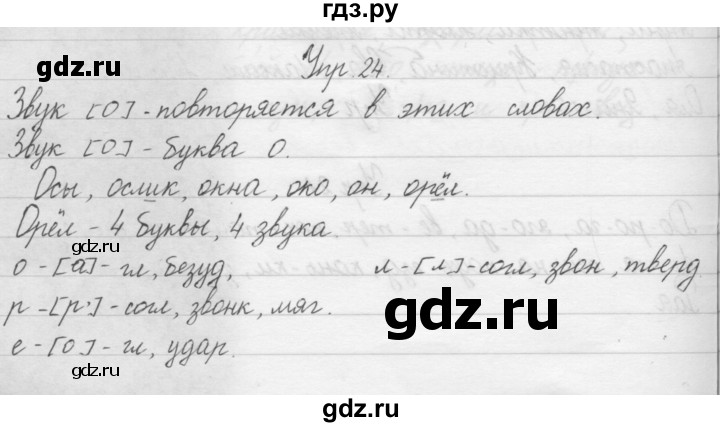 гдз.ру
gdz.ru
Упр 24.
Звук [О] - повторяется в этих словах.
Звук [О] - буква О.
gdz.ru
Осы, ослик, окна, око, он, орёл.
Орёл - 4 буквы, 4 звука.
gdz.ru
о - [а] - гл, безуд, л - [л] - согл, звон, тверд
р - [р'] - согл, звонк, мяг.
gdz.ru
е - [о] - гл, удар.
gdz.ru
gdz.ru